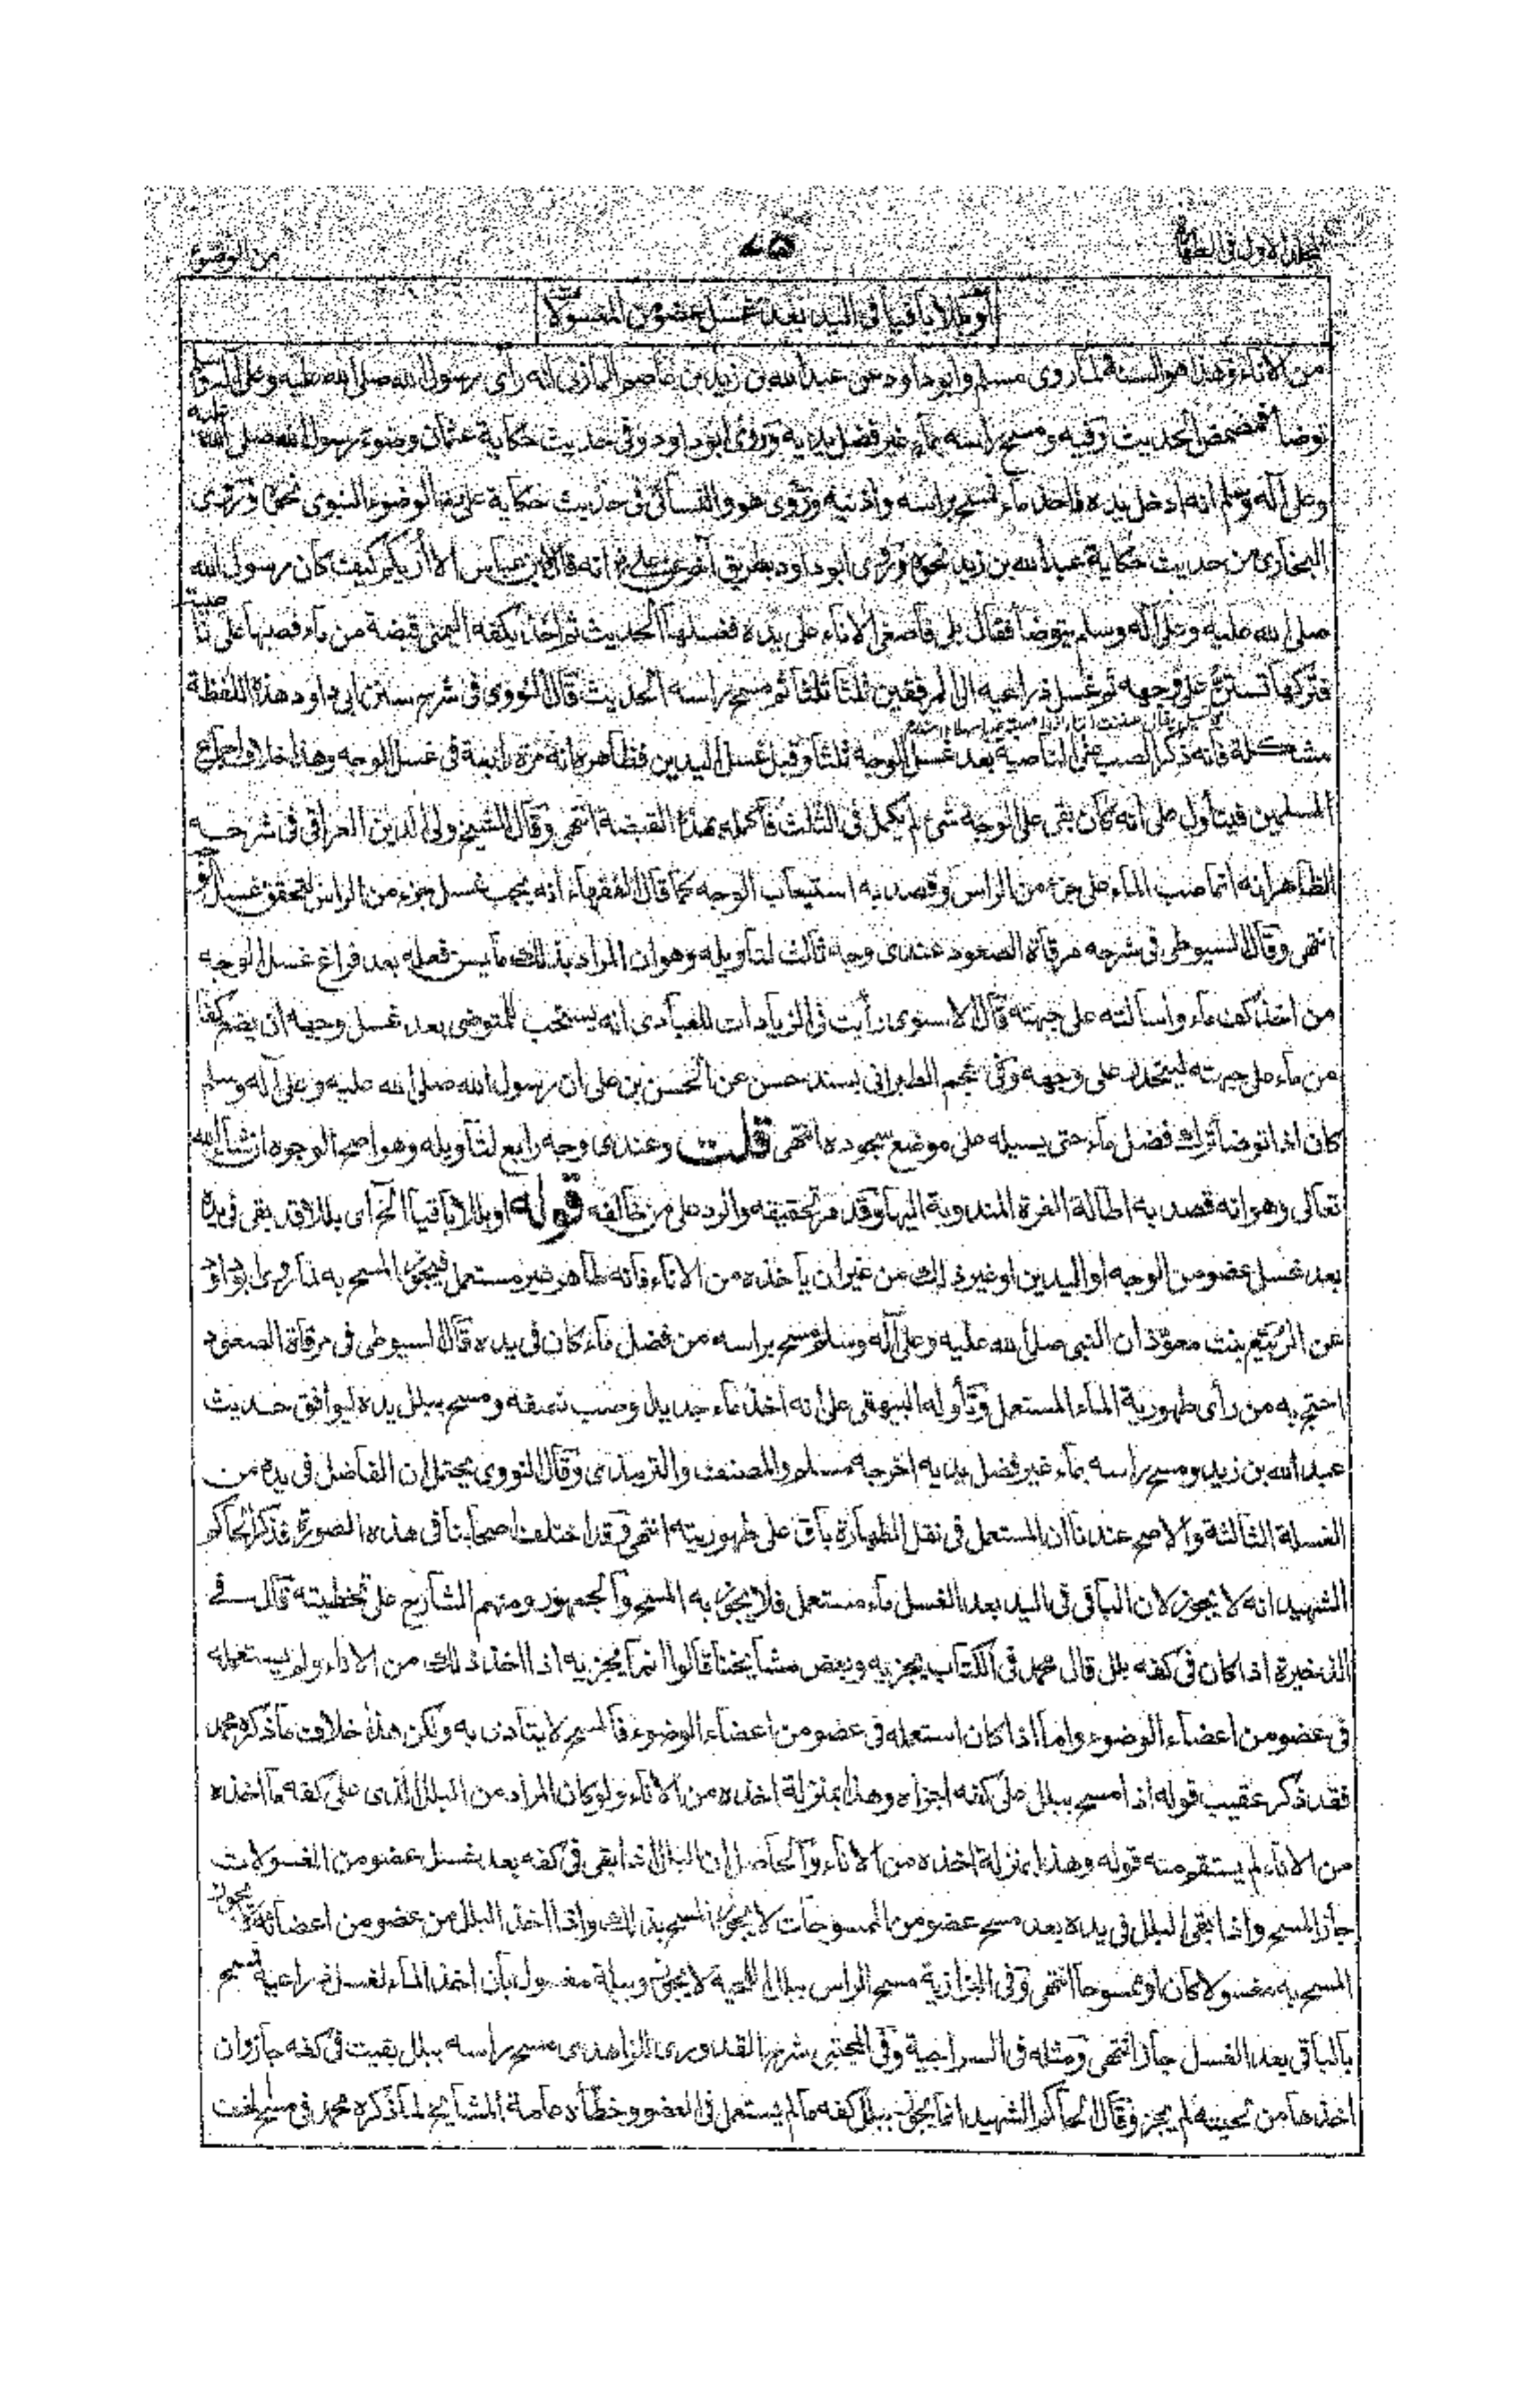 المجلد الاول فى الطهارة
٧٥
من الوضوء
او بللا باقيا فى اليد بعد غسل عضو من المغسولات
من الاناء وهذا هو السنة لما روى مسلم وابوداود عن عبد الله بن زيد بن عاصم المازنى انه رأى رسول الله صلى الله عليه وعلى آله وسلم
توضأ فمضمض الحديث وفيه ومسح راسه بماء غير فضل يديه وروى ابوداود فى حديث حكاية عثمان وضوء رسول الله صلى الله عليه
وعلى آله وسلم انه ادخل يده فاخذ ماء فمسح براسه واذنيه وروى هو والنسائى فى حديث حكاية على الوضوء النبوى نحوه وروى
البخارى من حديث حكاية عبد الله بن زيد نحوه وروى ابوداود بطريق آخر عن على انه قال لابن عباس الا اريكم كيف كان رسول الله
صلى الله عليه وعلى آله وسلم يتوضأ فقال بلى فاصغى الاناء على يده فغسلها الحديث ثم اخذ بكفه اليمنى قبضة من ماء فصبها على ناصيته
فتركها تستن على وجهه ثم غسل ذراعيه الى المرفقين ثلثا ثلثا ثم مسح راسه الحديث قال النووى فى شرح سنن ابى داود هذه اللفظة
مشكلة فانه ذكر الصب على الناصية بعد غسل الوجه ثلثا وقبل غسل اليدين فظاهره انه مرة رابعة فى غسل الوجه وهذا خلاف اجماع
المسلمين فيتأول على انه كان بقى على الوجه شئ لم يكمل فى الثلث فاكمله بهذه القبضة انتهى وقال الشيخ ولى الدين العراقى فى شرحه
الظاهر انه انما صب الماء على جزء من الراس وقصد به استيعاب الوجه كما قال الفقهاء انه يجب غسل جزء من الراس لتحقق غسل الوجه
انتهى وقال السيوطى فى شرحه مرقاة الصعود عندى وجه ثالث لتأويله وهو ان المراد بذلك ما يسن فعله بعد فراغ غسل الوجه
من اخذ كف ماء واسالته على جبهته قال الاسنوى رأيت فى الزيادات للعبادى انه يستحب للمتوضى بعد غسل وجهه ان يضع كفا
من ماء على جبهته ليتحدر على وجهه وفى معجم الطبرانى بسند حسن عن الحسن بن على ان رسول الله صلى الله عليه وعلى آله وسلم
كان اذا توضأ ترك فضل ماء حتى يسيله على موضع سجوده انتهى قلت وعندى وجه رابع لتأويله وهو اصح الوجوه ان شاء الله
تعالى وهو انه قصد به اطالة الغرة المندوبة اليها وقد مر تحقيقه والرد على من خالفه قوله او بللا باقيا الخ اى بللا قد بقى فى يده
بعد غسل عضو من الوجه او اليدين او غير ذلك من غير ان يأخذه من الاناء فانه طاهر غير مستعمل فيجوز المسح به لما روى ابوداود
عن الربيع بنت معوذ ان النبى صلى الله عليه وعلى آله وسلم مسح براسه من فضل ماء كان فى يده قال السيوطى فى مرقاة الصعود
احتج به من رأى طهورية الماء المستعمل وتأوله البيهقى على انه اخذ ماء جديدا وصب نصفه ومسح ببلل يده ليوافق حديث
عبد الله بن زيد ومسح راسه بماء غير فضل يديه اخرجه مسلم والمصنف والترمذى وقال النووى يحتمل ان الفاضل فى يده من
الغسلة الثالثة والاصح عندنا ان المستعمل فى نفل الطهارة باق على طهوريته انتهى وقد اختلف اصحابنا فى هذه الصورة فذكر الحاكم
الشهيد انه لا يجوز لان الباقى فى اليد بعد الغسل ماء مستعمل فلا يجوز به المسح والجمهور ومنهم الشارح على تخطيته قال فى
الذخيرة اذا كان فى كفه بلل قال محمد فى الكتاب يجزيه وبعض مشايخنا قالوا انما يجزيه اذا اخذ ذلك من الاناء ولم يستعمله
فى عضو من اعضاء الوضوء واما اذا كان استعمله فى عضو من اعضاء الوضوء فالمسح لا يتأدى به ولكن هذا خلاف ما ذكره محمد
فقد ذكر عقيب قوله اذا مسح ببلل على كفه اجزاه وهذا بمنزلة اخذه من الاناء ولو كان المراد من البلل الذى على كفه ما اخذه
من الاناء لم يستقم منه قوله وهذا بمنزلة اخذه من الاناء والحاصل ان البلل اذا بقى فى كفه بعد غسل عضو من المغسولات
جاز المسح واذا بقى البلل فى يده بعد مسح عضو من الممسوحات لا يجوز المسح بذلك واذا اخذ البلل من عضو من اعضائه لا يجوز
المسح به مغسولا كان او ممسوحا انتهى وفى البزازية مسح الراس ببلل اللحية لا يجوز وببلة مغسول بأن اخذ الماء لغسل ذراعيه فمسح
بالباقى بعد الغسل جاز انتهى ومثله فى السراجية وفى المجتبى شرح القدورى للزاهدى مسح راسه ببلل بقيت فى كفه جاز وان
اخذها من لحيته لم يجز وقال الحاكم الشهيد انما يجوز ببلل كفه ما لم يستعمل فى العضو وخطأه عامة المشايخ لما ذكره محمد فى مسح الخف